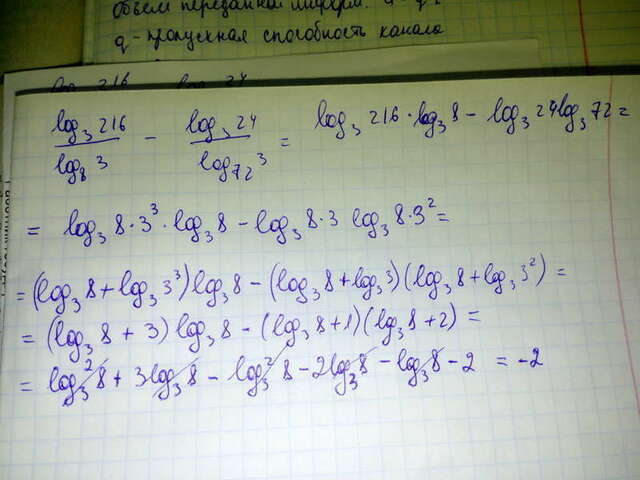 Объем переданной информ.
q - пропускная способность канала
log₃ 216 / log₈ 3 - log₃ 24 / log₇₂ 3 = log₃ 216 · log₃ 8 - log₃ 24 log₃ 72 =
= log₃ 8·3³ · log₃ 8 - log₃ 8·3 log₃ 8·3² =
= (log₃ 8 + log₃ 3³) log₃ 8 - (log₃ 8 + log₃ 3)(log₃ 8 + log₃ 3²) =
= (log₃ 8 + 3) log₃ 8 - (log₃ 8 + 1)(log₃ 8 + 2) =
= log₃² 8 + 3 log₃ 8 - log₃² 8 - 2 log₃ 8 - log₃ 8 - 2 = -2